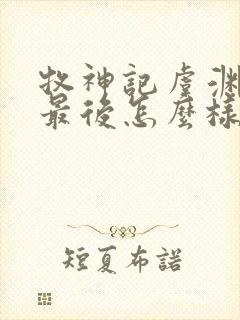 牧神記虞渊
最後怎麼樣
短夏布諾